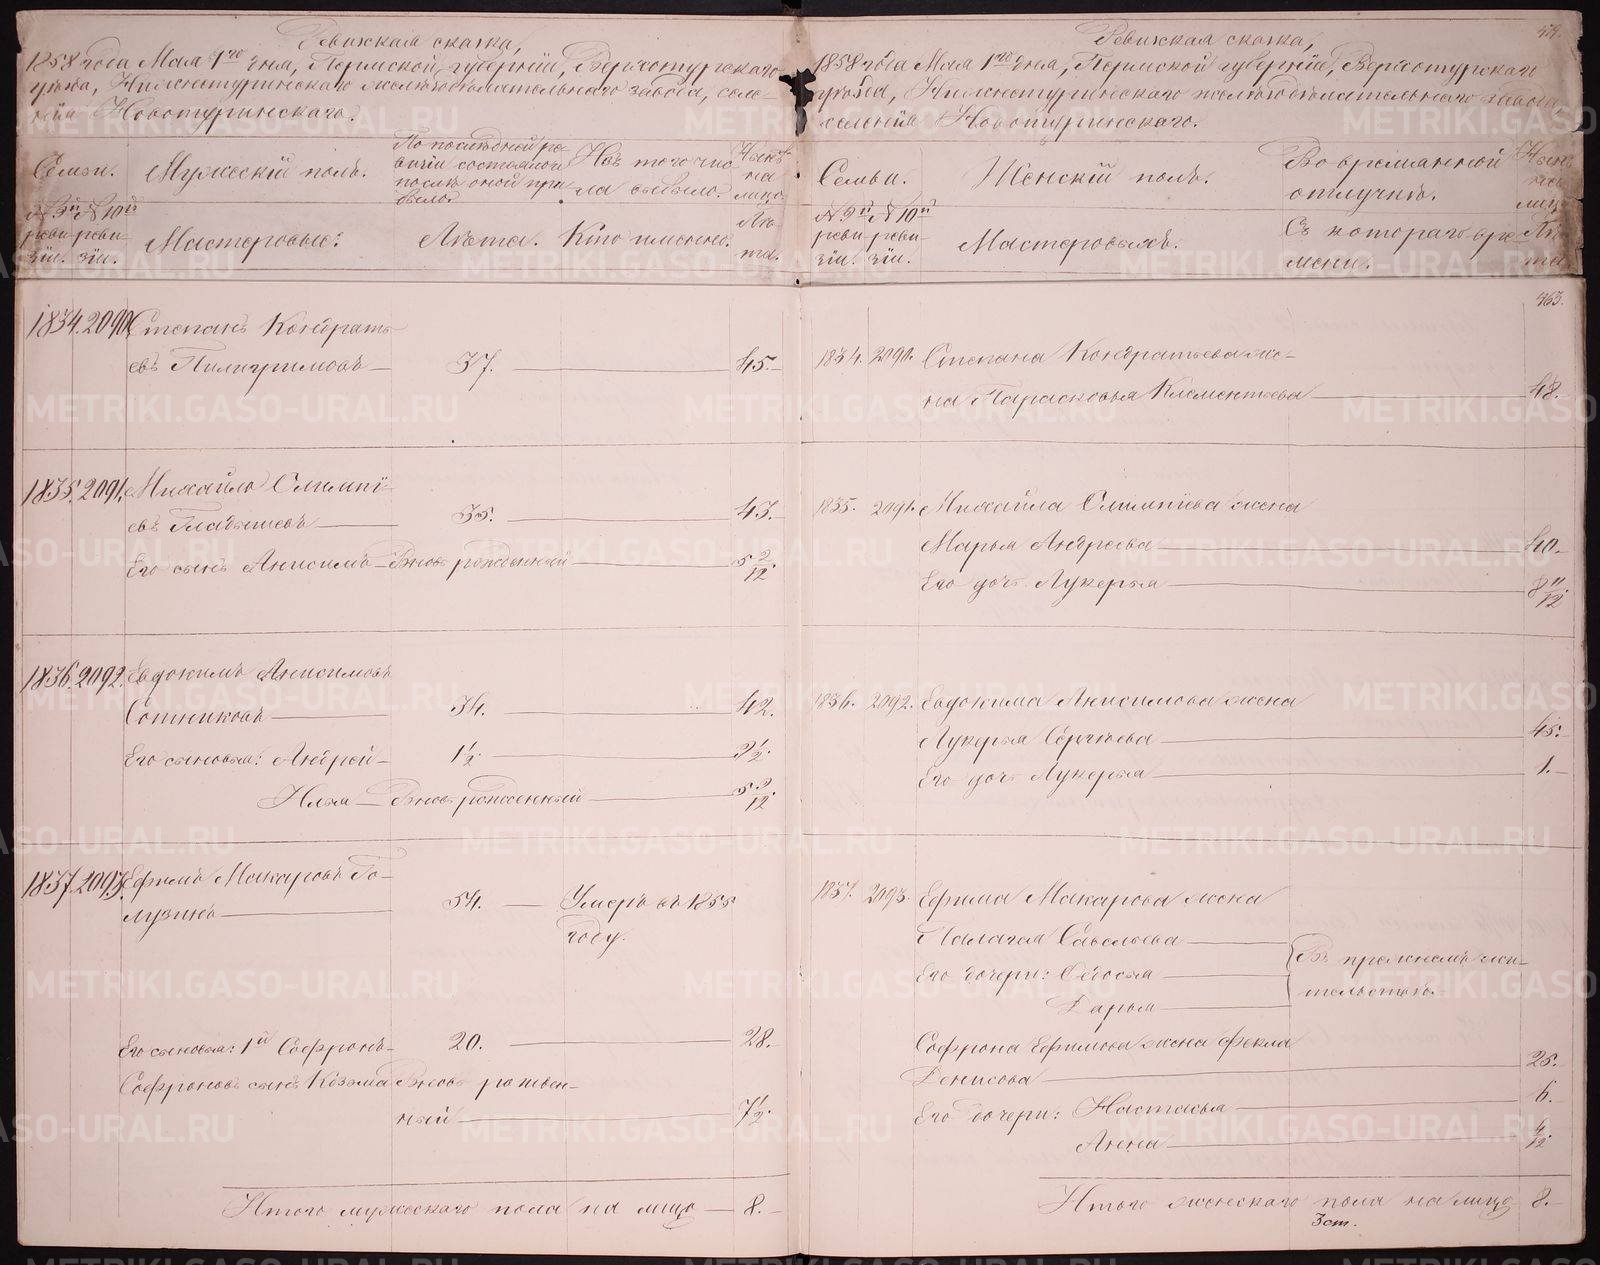 Ревижская сказка,
1858 года Мая 1го дня, Пермской губернiи, Верхотурскаго
уѣзда, Нижнетуринскаго желѣзодѣлательнаго завода, селе-
нiя Новотуринскаго.
Семьи.
Мужескiй полъ.
По послѣдней ре-
визiи состояло и
послѣ оной при-
было.
Изъ того чис-
ла выбыло.
Нынѣ
на
лицо.
№ 9й № 10й
реви- реви-
зiи. зiи.
Мастеровые:
Лѣта.
Кто именно.
Лѣ-
та.
1834. 2090. Степанъ Кондрать-
евъ Пилигримовъ 37. 45.
1835. 2091. Михайло Олимпi-
евъ Гладышевъ 35. 43.
Его сынъ Анисимъ Вновь рожденный 5 2/12.
1836. 2092. Евдокимъ Анисимовъ
Сотниковъ 34. 42.
Его сыновья: Андрей 1 1/2. 9 1/2.
Илья Вновь рожденный 5 9/12.
1837. 2093. Ефимъ Макаровъ Го-
лузинъ 54. Умеръ въ 1855
году.
Его сыновья: 1й Софронъ 20. 28.
Софроновъ сынъ Козьма Вновь рожден-
ный 7 1/2.
Итого мужескаго пола на лицо 8.
Ревижская сказка,
1858 года Мая 1го дня, Пермской губернiи, Верхотурскаго
уѣзда, Нижнетуринскаго желѣзодѣлательнаго завода
селенiя Новотуринскаго.
Семьи.
Женскiй полъ.
Во временной
отлучкѣ.
Нынѣ
на
лицо
№ 9й № 10й
реви- реви-
зiи. зiи.
Мастеровыхъ.
Съ котораго вре-
мени.
Лѣ-
та
463.
1834. 2090. Степана Кондратьева же-
на Парасковья Клементьева 48.
1835. 2091. Михайла Олимпiева жена
Марья Андреева 40.
Его дочь Лукерья 8 11/12.
1836. 2092. Евдокима Анисимова жена
Лукерья Сергѣева 45.
Его дочь Лукерья 1.
1837. 2093. Ефима Макарова жена
Палагея Савельева
Его дочери: Ѳедосья
Дарья
Въ прежнемъ жи-
тельствѣ.
Софрона Ефимова жена Фекла
Денисова 25.
Его дочери: Настасья 6.
Анна 4/12.
Итого женскаго пола на лицо 8.
3 ст.
METRIKI.GASO-URAL.RU